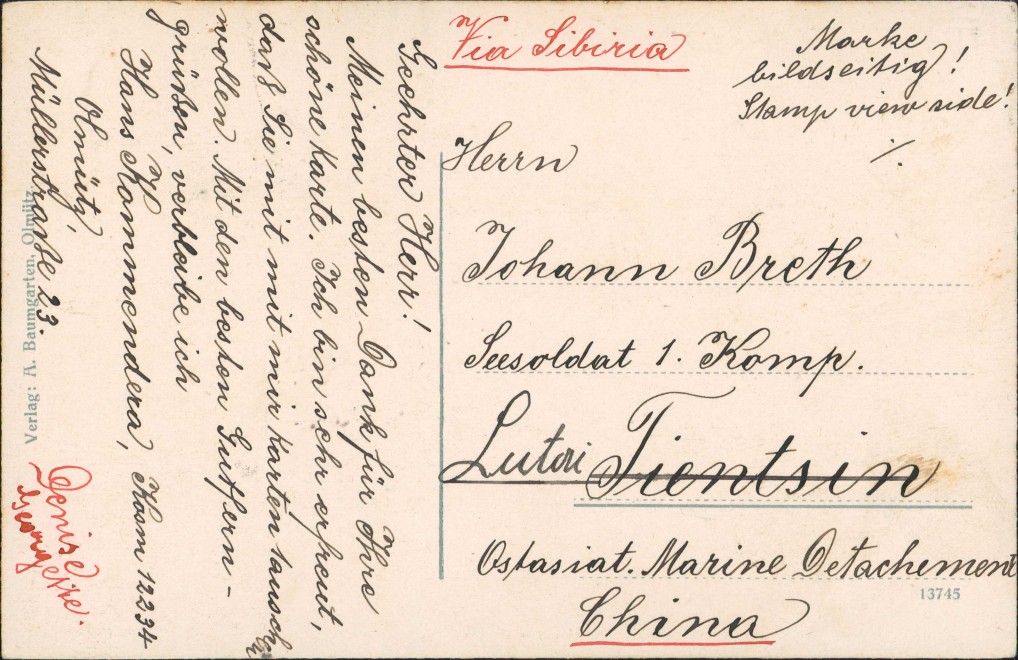 Via Sibiria
Marke
bildseitig!
Stamp view side!
Herrn
Johann Breth
Seesoldat 1. Komp.
Lutai Tientsin
Ostasiat. Marine Detachement
China
13745
Geehrter Herr!
Meinen besten Dank für Ihre
schöne Karte. Ich bin sehr erfreut,
daß Sie mit mir Karten tauschen
wollen. Mit den besten
grüßen, verbleibe ich
Hans Kommendera, Kosm 12234
Olmütz,
Müllerstraße 23.
Verlag: A. Baumgarten, Olmütz
Denise
Georgette.